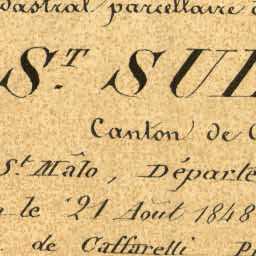 dastral parcellaire
ST. SUL
Canton de C
St. Mâlo, Départe
le 21 Août 1848
de Caffarelli P